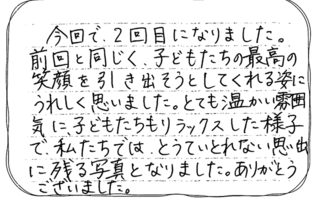 今回で、2回目になりました。
前回と同じく、子どもたちの最高の
笑顔を引き出そうとしてくれる姿に
うれしく思いました。とても温かい雰囲
気に、子どもたちもリラックスした様子
で、私たちでは、とうていとれない思い出
に残る写真となりました。ありがとう
ございました。